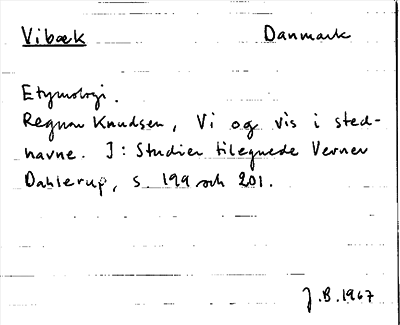 Vibæk Danmark
Etymologi.
Regnar Knudsen, Vi og vis i sted-
navne. I: Studier tilegnede Verner
Dahlerup, s. 199 och 201.
J.B. 1967